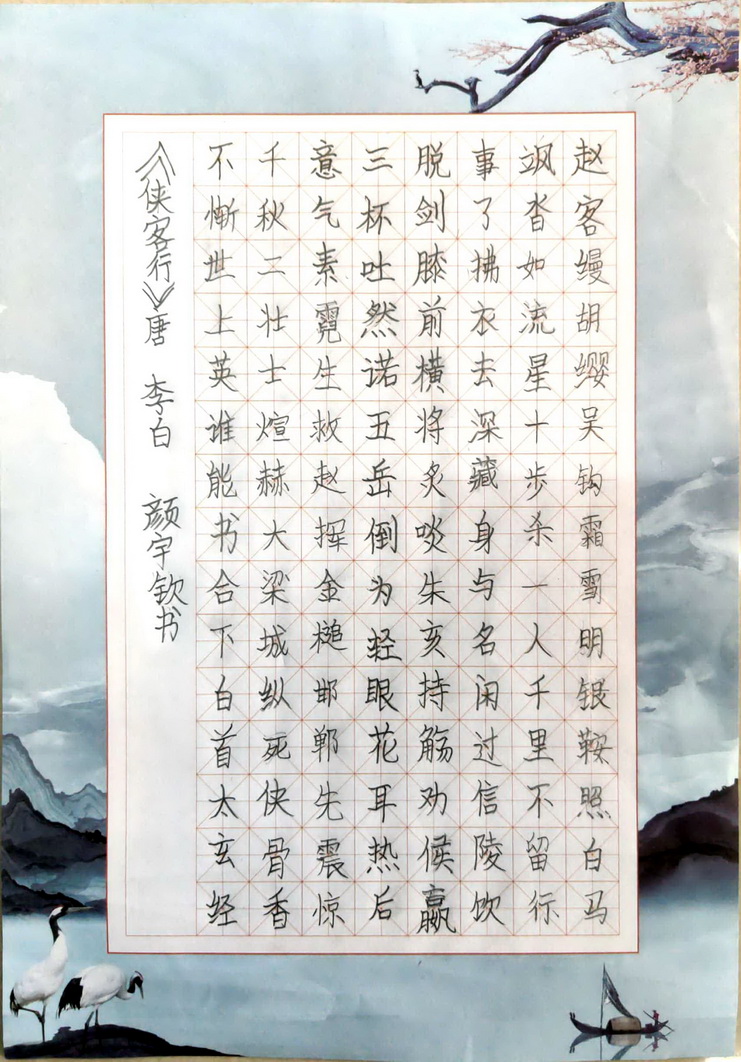 赵客缦胡缨吴钩霜雪明银鞍照白马
飒沓如流星十步杀一人千里不留行
事了拂衣去深藏身与名闲过信陵饮
脱剑膝前横将炙啖朱亥持觞劝候嬴
三杯吐然诺五岳倒为轻眼花耳热后
意气素霓生救赵挥金槌邯郸先震惊
千秋二壮士煊赫大梁城纵死侠骨香
不惭世上英谁能书合下白首太玄经
《侠客行》唐 李白 颜宇钦书